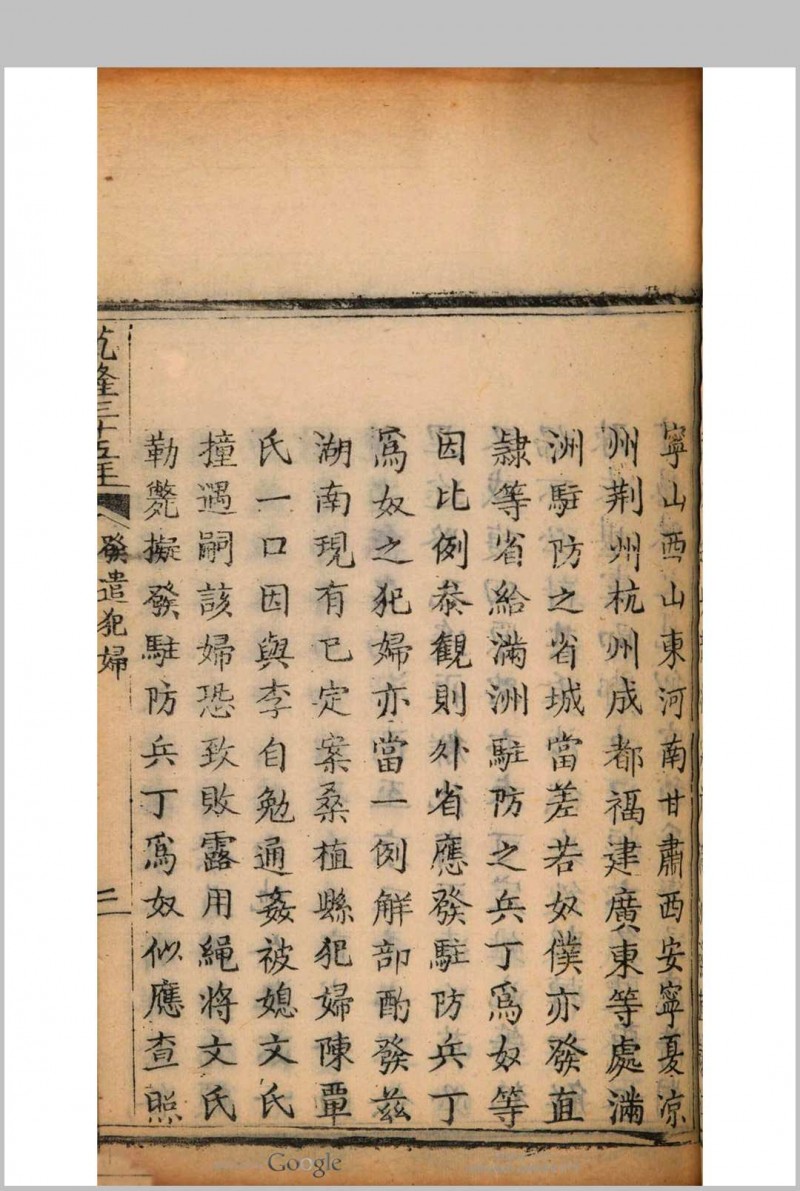 寧山西山東河南甘肅西安寧夏凉
州荆州杭州成都福建廣東等處滿
洲駐防之省城當差若奴僕亦發直
隸等省給滿洲駐防之兵丁爲奴等
因比例叅觀則外省應發駐防兵丁
爲奴之犯婦亦當一例解部酌發兹
湖南現有已定案桑植縣犯婦陳覃
氏一口因與李自勉通姦被媳文氏
撞遇嗣該婦恐致敗露用繩將文氏
勒斃擬發駐防兵丁爲奴似應查照
乾隆三十五年 發遣犯婦 三
Google